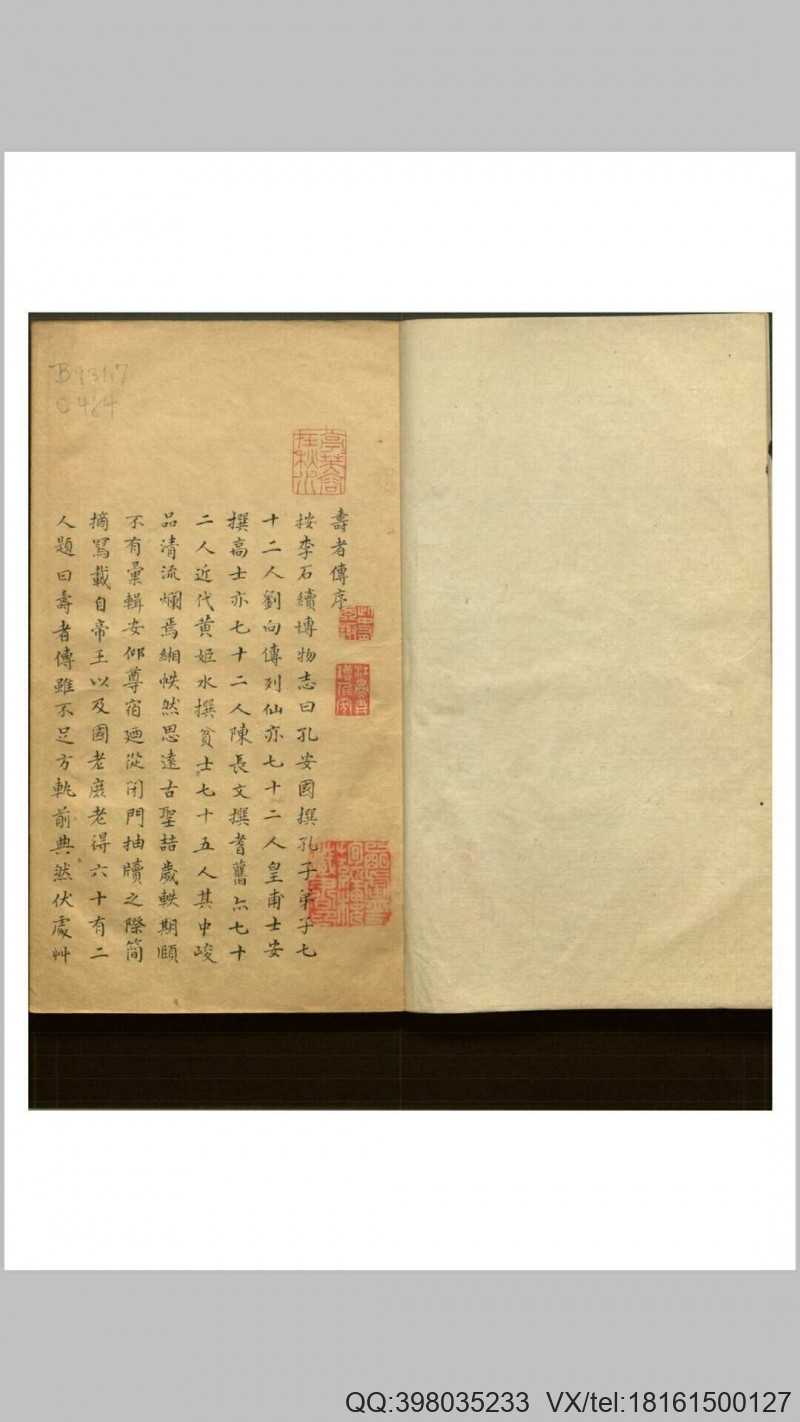 B9317
C424
壽者傳序
按李石續博物志曰孔安國撰孔子弟子七
十二人劉向傳列仙亦七十二人皇甫士安
撰高士亦七十二人陳長文撰耆舊亦七十
二人近代黄姬水撰貧士七十五人其中峻
品清流爛焉緗帙然思遠古聖喆歲軼期頤
不有彙輯安仰尊宿廼從閉門抽牘之際簡
摘罵載自帝王以及國老庶老得六十有二
人題曰壽者傳雖不足方軌前典然伏處艸
QQ:398035233 VX/tel:18161500127